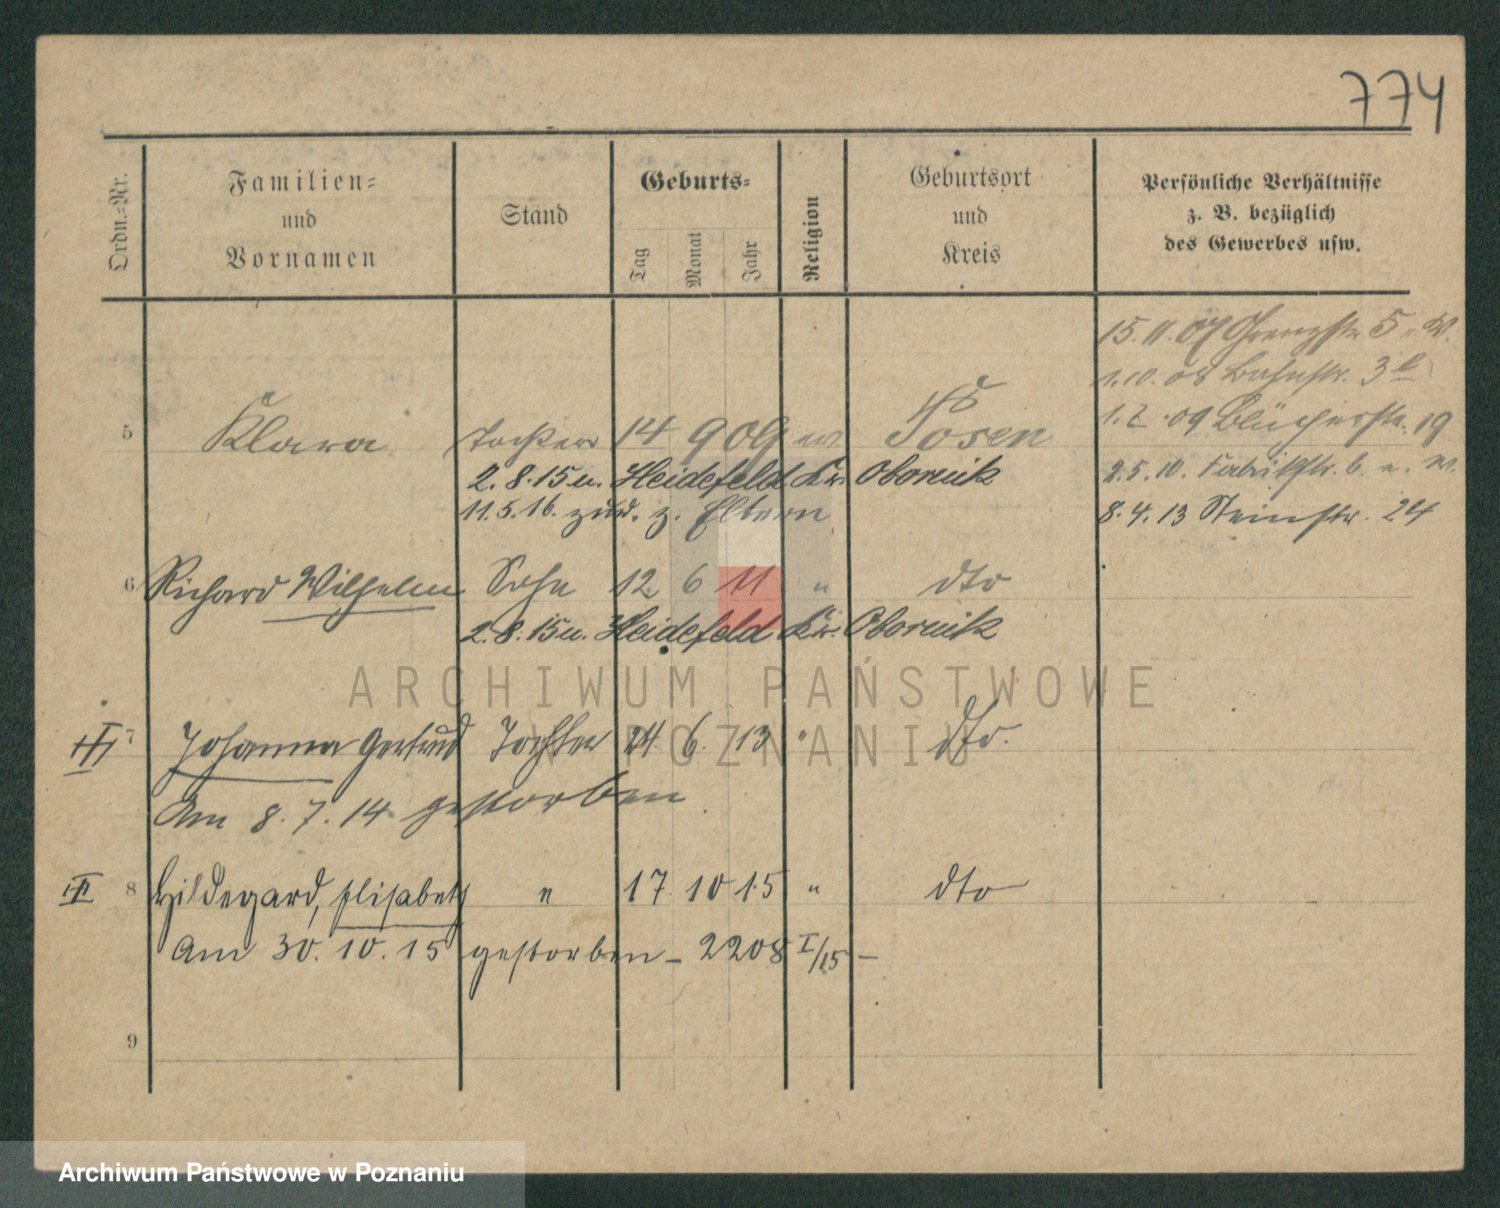 774
Ordn.-Nr.
Familien-
und
Vornamen
Stand
Geburts-
Tag
Monat
Jahr
Religion
Geburtsort
und
Kreis
Persönliche Verhältnisse
z. B. bezüglich
des Gewerbes usw.
15.11.07 Grenzstr. 5 v. W.
1.10.08 Bahnstr. 3
1.7.09 Blücherstr. 19
2.5.10. Fabrikstr. 6. v. W.
8.4.13 Steinstr. 24
5 Klara Tochter 14 9 09 ev Posen
2.8.15 u. Heidefeld Kr. Obornik
11.5.16. zurück. z. Eltern
6 Richard Wilhelm Sohn 12 6 11 " dto
2.8.15 u. Heidefeld Kr. Obornik
7 Johanna Gertrud Tochter 24. 6. 13 " dto.
Am 8.7.14 gestorben
8 Hildegard, Elisabeth " 17. 10 15 " dto
Am 30.10.15 gestorben – 2208 I/15 –
9
ARCHIWUM PAŃSTWOWE
W POZNANIU
Archiwum Państwowe w Poznaniu